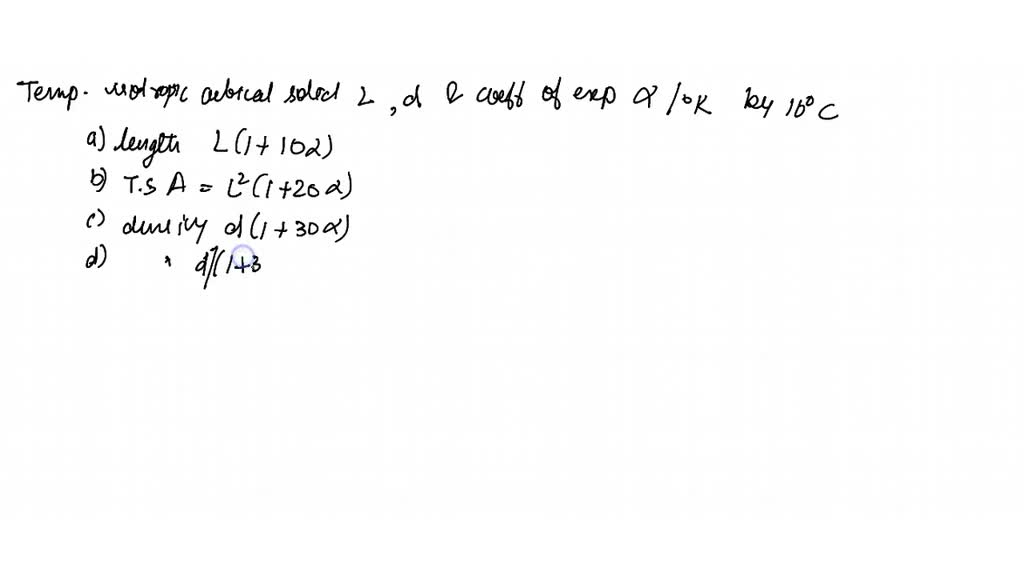 Temp. isotropic cubical solid L, d & coeff of exp α /°K by 10°C
a) length L(1+10α)
b) T.S A = L²(1+20α)
c) density d(1+30α)
d) " d/(1+3